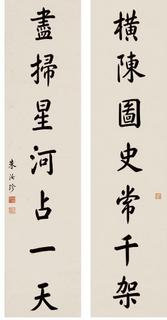 橫陳圖史常千架
盡掃星河占一天
朱汝珍